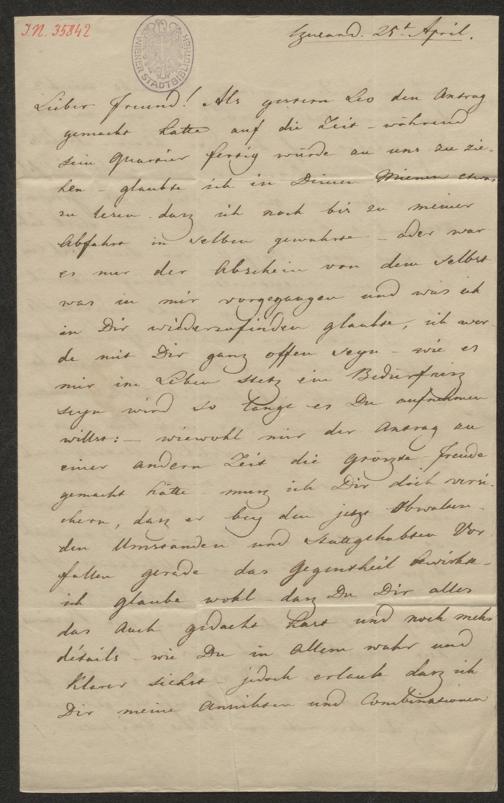 I.N. 35842
WIENER STADTBIBLIOTHEK
25t April.
Lieber Freund! Als gestern Leo den Antrag
gemacht hatte auf die Zeit – während
sein Quartier fertig würde zu uns zu zie-
hen – glaubte ich in Deinen Mienen etwas
zu lesen. dasz ich noch bis zu meiner
Abfahrt in selben gewahrte – oder war
es nur der Abschein von dem selbst
was in mir vorgegangen und was ich
in Dir wiederzufinden glaubte, ich wer
de mit Dir ganz offen seyn – wie es
mir im Leben stetz ein Bedürfnisz
seyn wird so lange es Du aufnehmen
willst: – wiewohl mir der Antrag zu
einer andern Zeit die gröszte Freude
gemacht hätte – musz ich Dir doch versi-
chern, dasz er bey den jetzt obwalten-
den Umständen und stattgehabten Vor
fällen gerade das Gegentheil bewirkte –
ich glaube wohl – dasz Du Dir alles
das auch gedacht hast und noch mehr
détails – wie Du in Allem wahr und
klarer siehst – jedoch erlaube dasz ich
Dir meine Ansichten und Combinationen